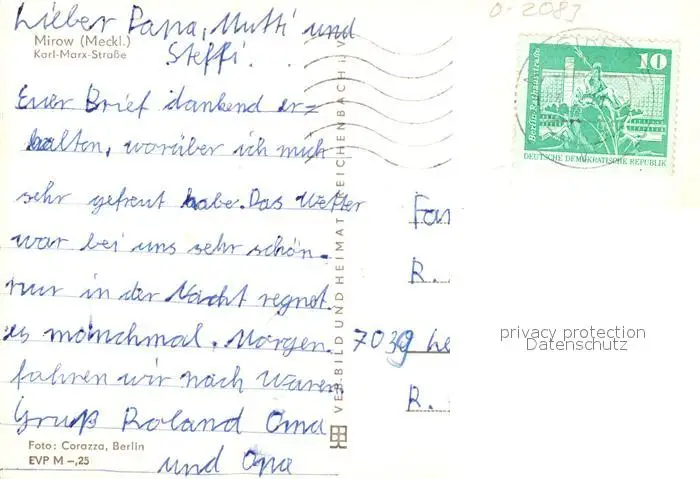 O-2083
Lieber Papa, Mutti und
Steffi.
Mirow (Meckl.)
Karl-Marx-Straße
Euer Brief dankend er=
halten, worüber ich mich
sehr gefreut habe. Das Wetter
war bei uns sehr schön.
nur in der Nacht regnet
es mönchmal. Morgen
fahren wir nach Waren
Gruß Roland Oma
und Opa
Foto: Corazza, Berlin
EVP M –,25
VEB BILD UND HEIMAT REICHENBACH i. V.
Berlin-Rathausstraße
10
DEUTSCHE DEMOKRATISCHE REPUBLIK
Fam
R.
7039 Le
R.
privacy protection
Datenschutz